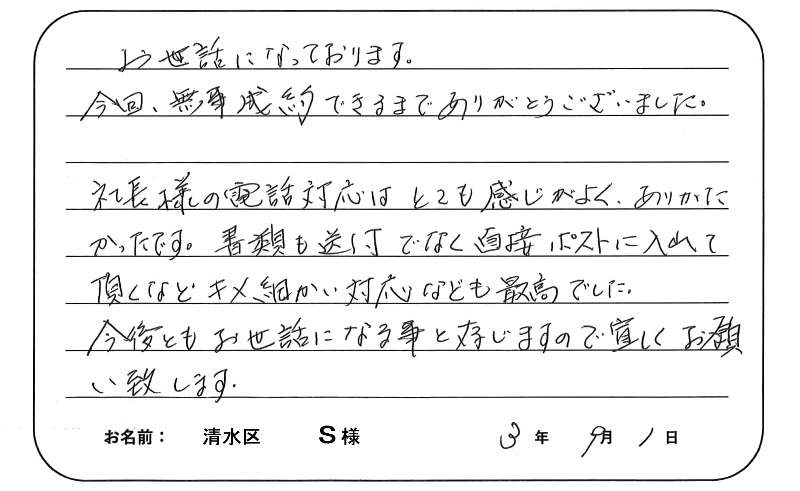 お世話になっております。
今回、無事成約できるまでありがとうございました。
社長様の電話対応はとても感じがよく、ありがた
かったです。書類も送付でなく直接ポストに入れて
頂くなどキメ細かい対応なども最高でした。
今後ともお世話になる事と存じますので宜しくお願
い致します。
お名前： 清水区 S様 3年 9月 1日